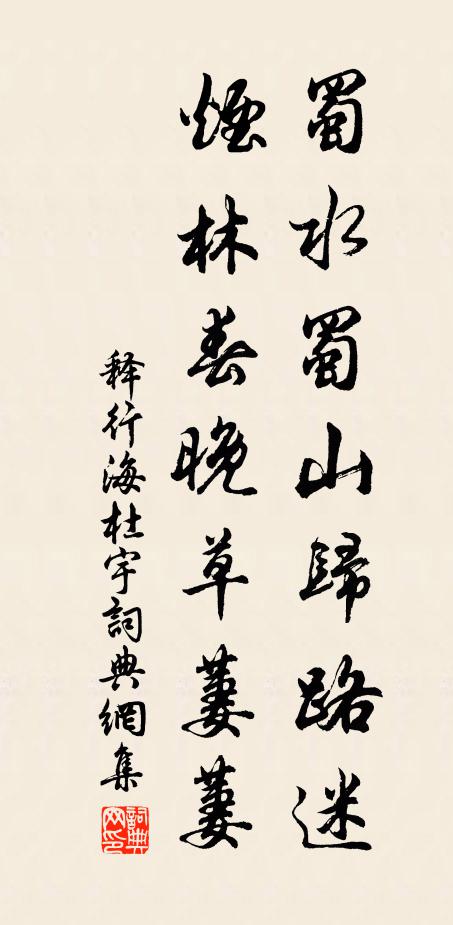 蜀水蜀山歸路迷
煙林春晚草萋萋
释行海杜宇詞典網集
詞典网印